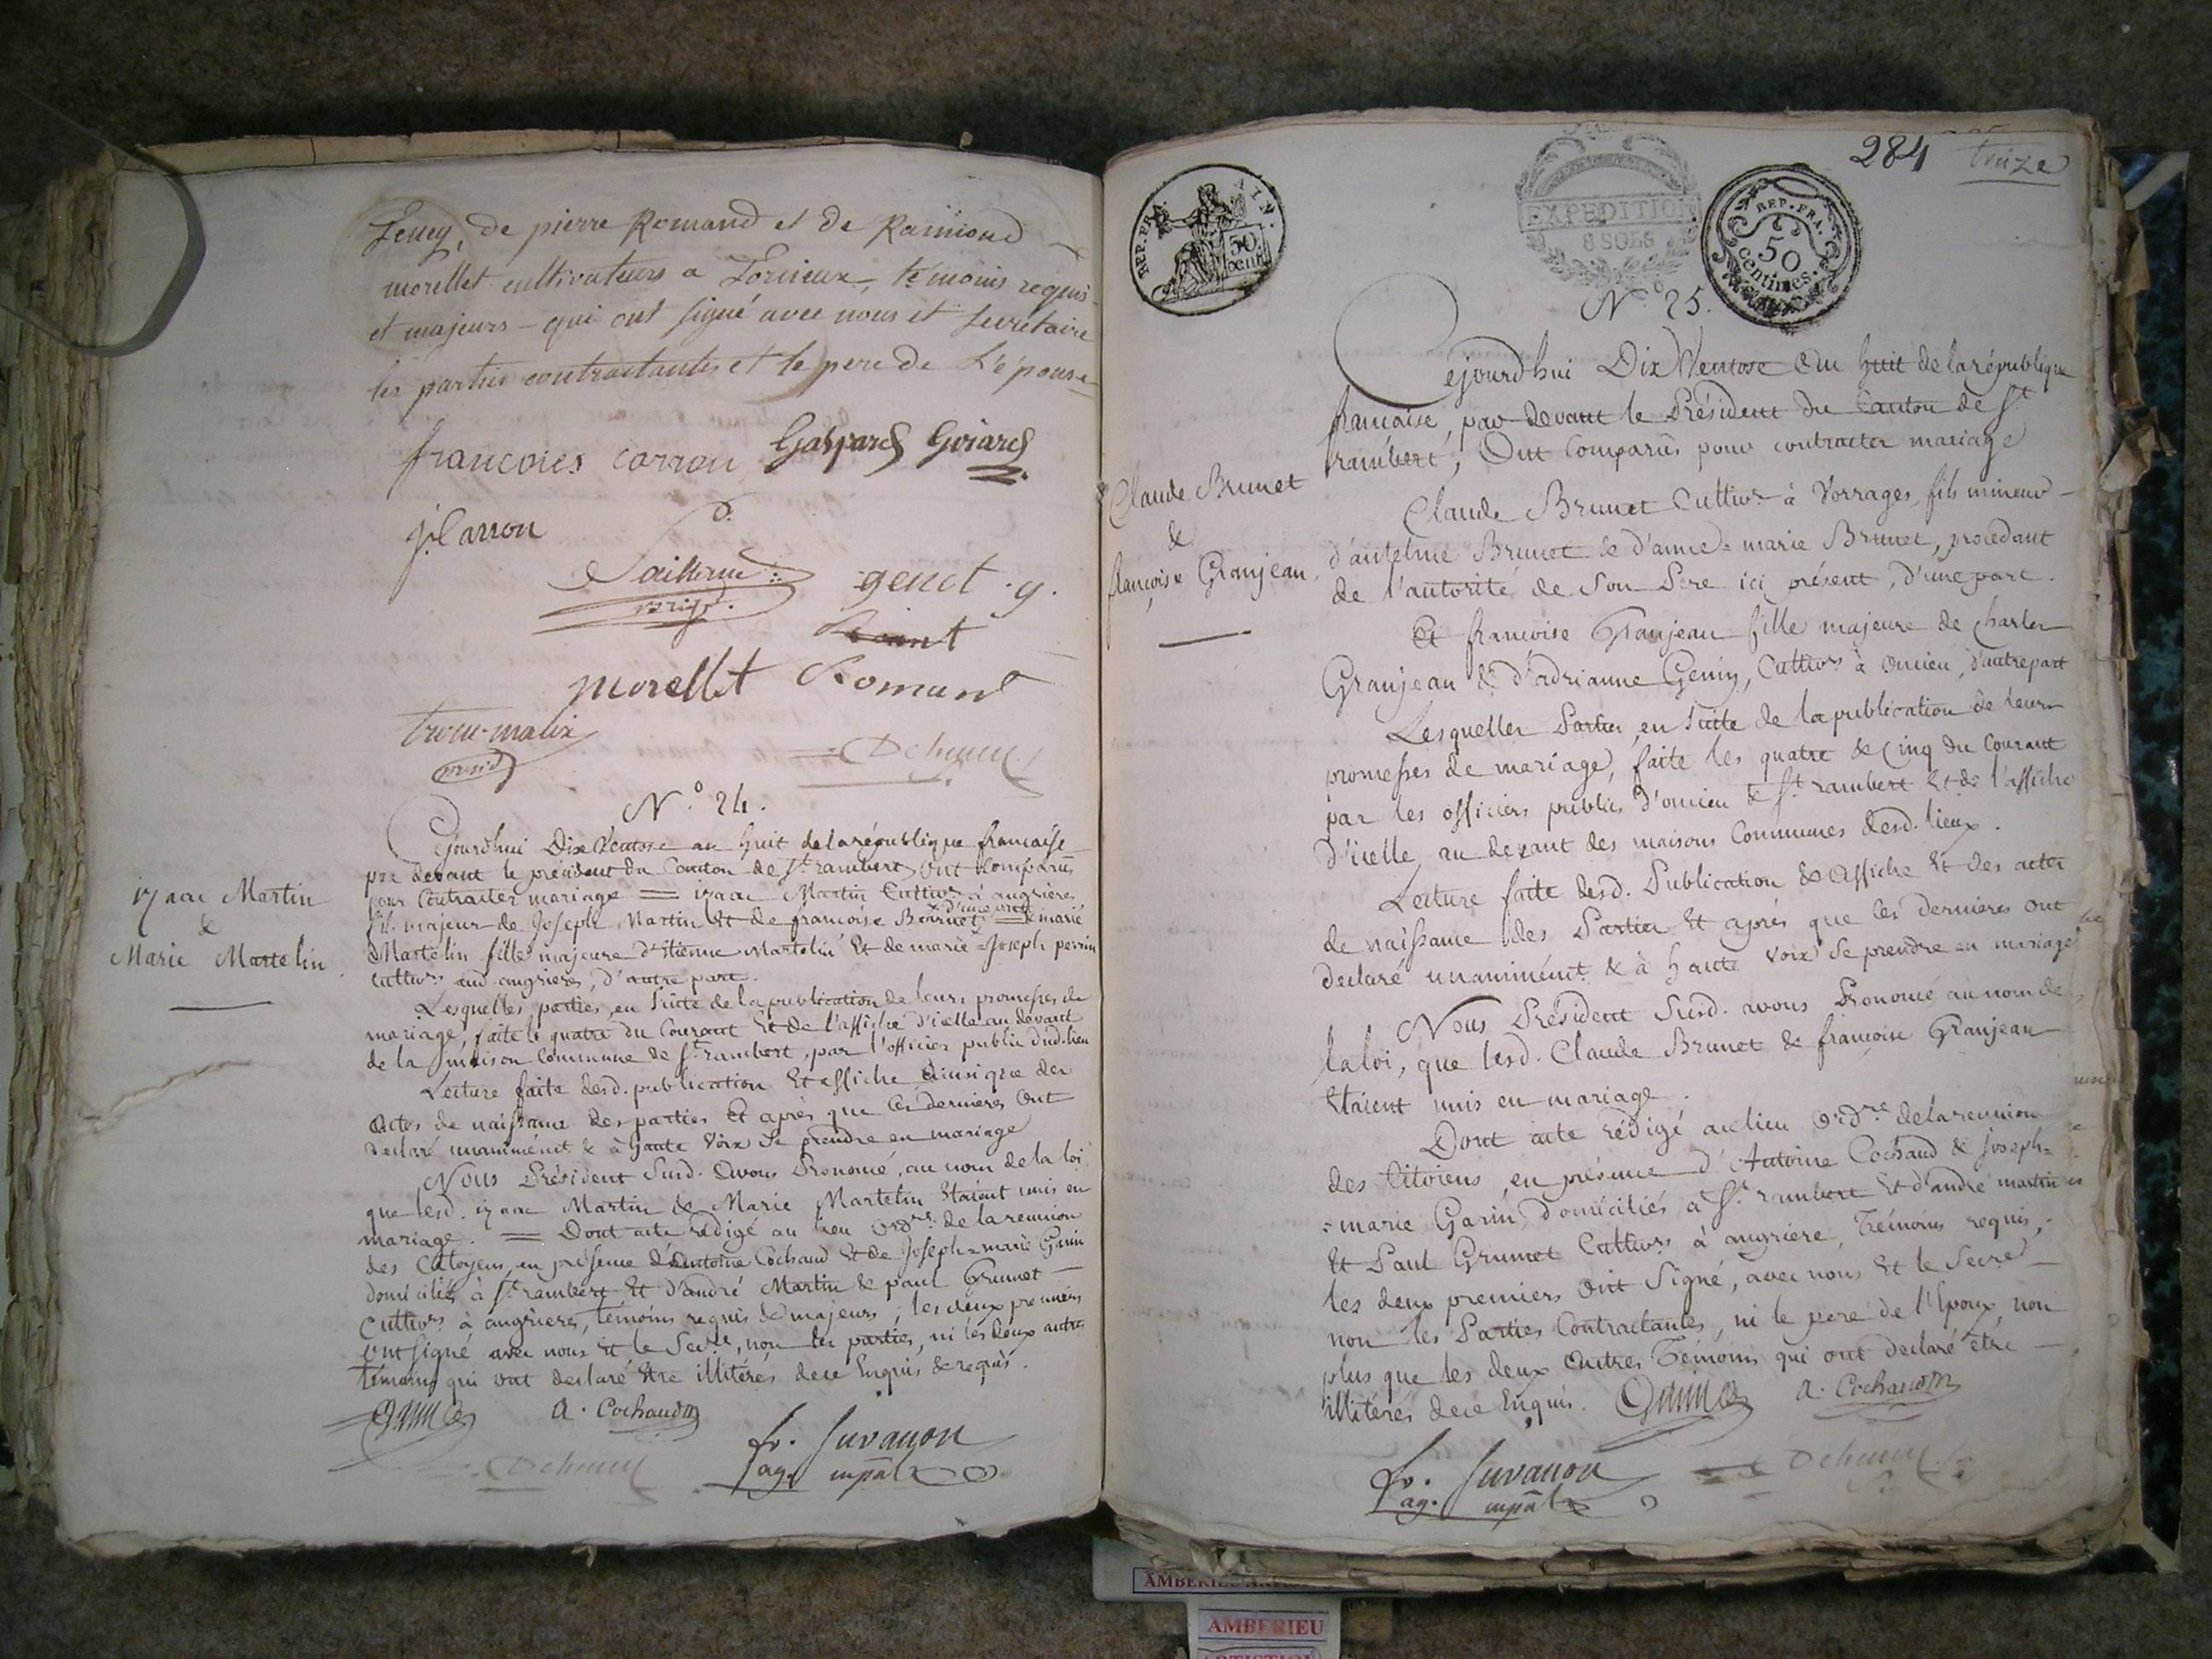 de pierre Romand et de Raimond
morellet cultivateurs a Torcieux, témoins requis
et majeurs - qui ont signé avec nous et secretaire
les parties contractantes et le pere de L'épouse
francoies Carron Gaspard Girard
j. Carron
genet . g.
morellet Romand
N.o 24.
izaac Martin
&
Marie Martelin.
Cejourdhui Dix Ventose an huit de la république française
par devant le président du Canton de St. rambert, ont comparus
pour Contracter mariage = izaac Martin Cultivr. à angrieres
fils majeur de Joseph Martin Et de francoise Bournet, d'une part = & marie
Martelin fille majeure d'Etienne Martelin Et de marie = Joseph perrin
cultivrs. aud. angrieres, d'autre part.
Lesquelles parties, en suite de la publication de leurs promesses de
mariage, faite le quatre du Courant Et de l'affiche d'icelle au devant
de la maison Commune de St. rambert, par l'officier public dud. lieu
Lecture faite desd. publication Et affiche, Ainsi que des
Actes de naissance des parties Et après que les dernieres Ont
declaré unanimément & à haute Voix Se prendre en mariage
Nous Président Susd. Avons Prononcé, au nom de la loi
que lesd. izaac Martin & Marie Martelin Etaient unis en
mariage. = Dont acte rédigé au lieu Ordre. de la reunion
des Citoyens, en présence d'Antoine Cochaud Et de Joseph = marie Garin
domiciliés à St. rambert Et d'andré Martin & paul Grumet
Cultivrs. à angrieres, témoins requis & majeurs, les deux premiers
ont signé avec nous Et le Secre., non les parties, ni les deux autres
témoins qui ont declaré Etre illitérés de ce Enquis & requis.
Garin a. Cochaud
fr. Juvanon
ag. mpal
284 treize
REP. FRA. AIN.
50 cent.
EXPEDITION
8 SOLS
REP. FRA.
50
centimes.
N.o 25.
Claude Brunet
&
françoise Granjean.
Cejourdhui Dix Ventose an huit de la république
francaise, par devant le Président du Canton de St.
rambert, Ont Comparus pour contracter mariage
Claude Brunet Cultivr. à Vorrages, fils mineur
d'antelme Brunet & d'anne = marie Brunet, procédant
de l'autorité de Son Pere ici présent, d'une part.
Et francoise Granjean fille majeure de Charles
Granjean & d'adrianne Geniy, Cultivrs. à oncieu, d'autre part
Lesquelles Parties, en suite de la publication de leurs
promesses de mariage, faite les quatre & Cinq du Courant
par les officiers publics d'oncieu & St. rambert Et de l'affiche
d'icelle, au devant des maisons Communes desd. lieux.
Lecture faite desd. Publication & Affiche Et des actes
de naissance des Parties Et après que les dernieres ont
declaré unanimémt. & à haute voix Se prendre en mariage
Nous Président Susd. avons Prononcé au nom de
la loi, que lesd. Claude Brunet & françoise Granjean
Etaient unis en mariage.
Dont acte rédigé au lieu Ordre. de la reunion
des Citoiens, en présence d'Antoine Cochaud & Joseph =
= marie Garin, domiciliés à St. rambert Et d'andré martin
Et Paul Grumet Cultivrs. à angriere, Témoins requis,
les deux premiers ont Signé, avec nous Et le Secre.
non les Parties Contractantes, ni le pere de l'Epoux, non
plus que les deux autres Témoins qui ont declaré être
illitérés de ce Enquis. Garin a. Cochaud
fr. Juvanon
ag. mpal
AMBERIEU
AMBERIEU